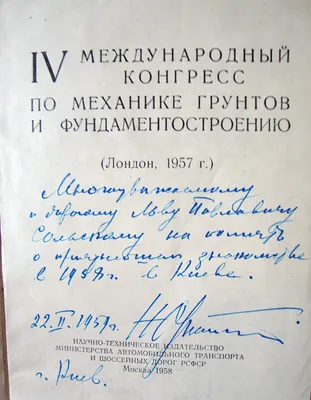 IV МЕЖДУНАРОДНЫЙ
КОНГРЕСС
ПО МЕХАНИКЕ ГРУНТОВ
И ФУНДАМЕНТОСТРОЕНИЮ
(Лондон, 1957 г.)
Многоуважаемому
и дорогому Льву Павловичу
на память
о приятном знакомстве
в Киеве.
НАУЧНО-ТЕХНИЧЕСКОЕ ИЗДАТЕЛЬСТВО
МИНИСТЕРСТВА АВТОМОБИЛЬНОГО ТРАНСПОРТА
И ШОССЕЙНЫХ ДОРОГ РСФСР
Москва 1958
г. Киев.